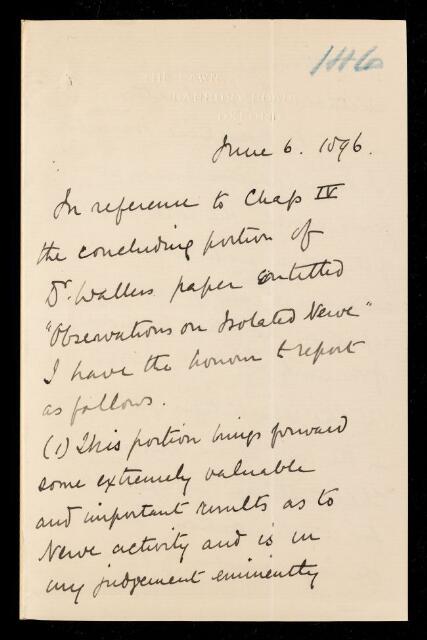 146
THE LAWN,
BANBURY ROAD,
OXFORD.
June 6. 1896.
In reference to Chap IV
the concluding portion of
Dr. Wallers paper entitled
"Observations on Isolated Nerve"
I have the honour to report
as follows.
(1) This portion brings forward
some extremely valuable
and important results as to
Nerve activity and is in
my judgement eminently